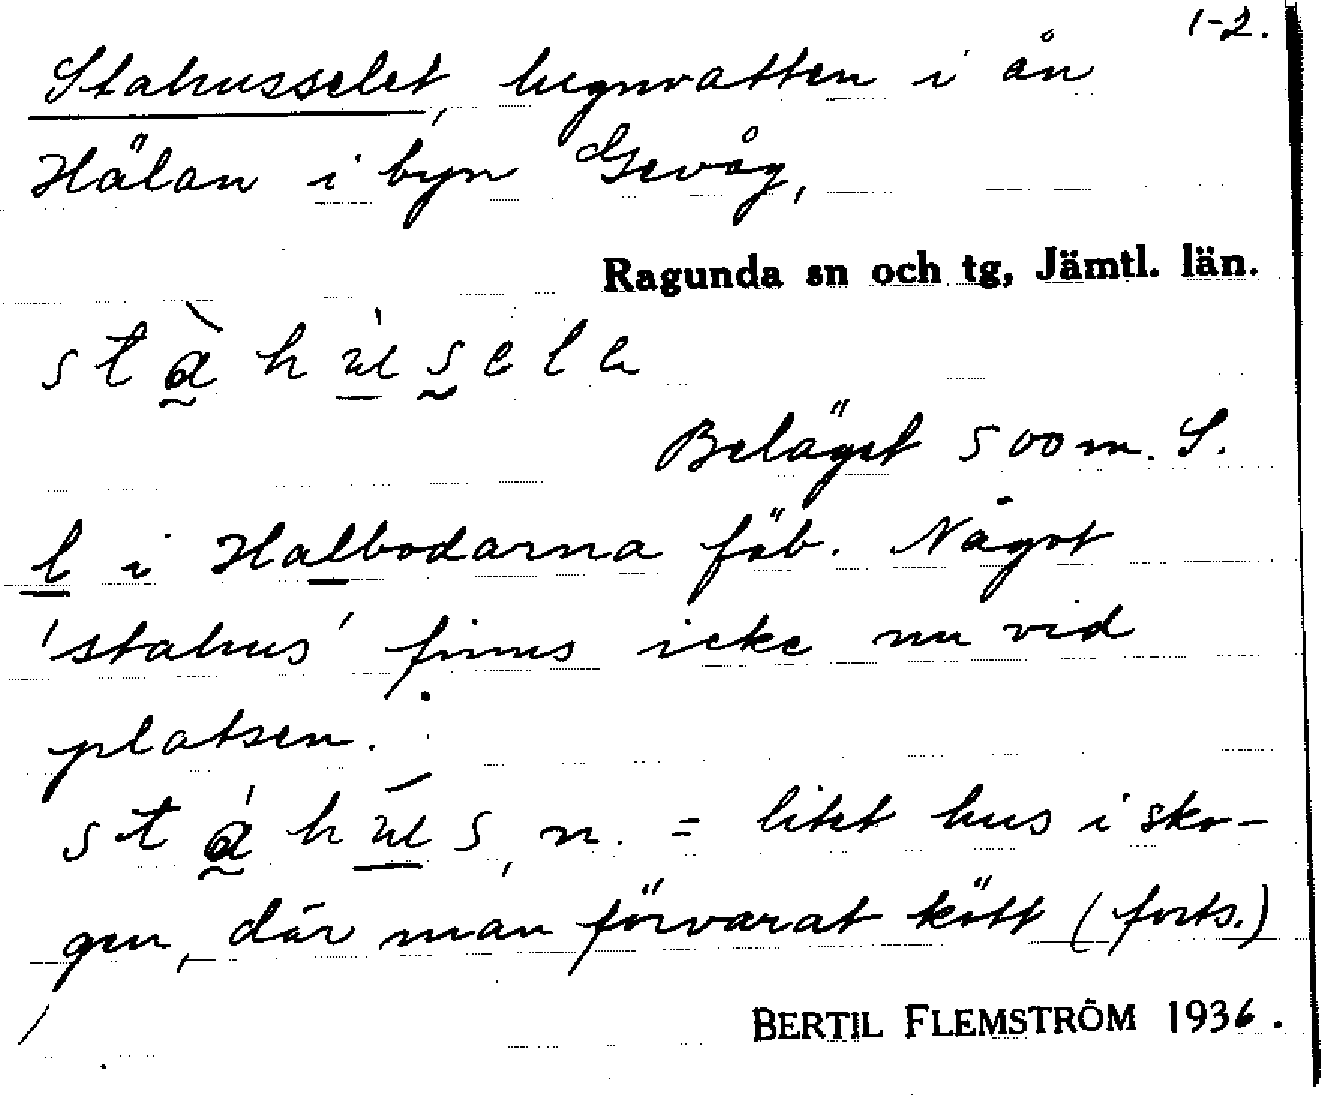 1-2.
Stahusselet, lugnvatten i ån
Hälan i byn Gevåg,
Ragunda sn och tg, Jämtl. län.
Beläget 500 m. S.
l i Halbodarna fäb. Något
'stahus' finns icke nu vid
platsen.
n. = litet hus i sko-
gen, där man förvarat kött (forts.)
BERTIL FLEMSTRÖM 1936.